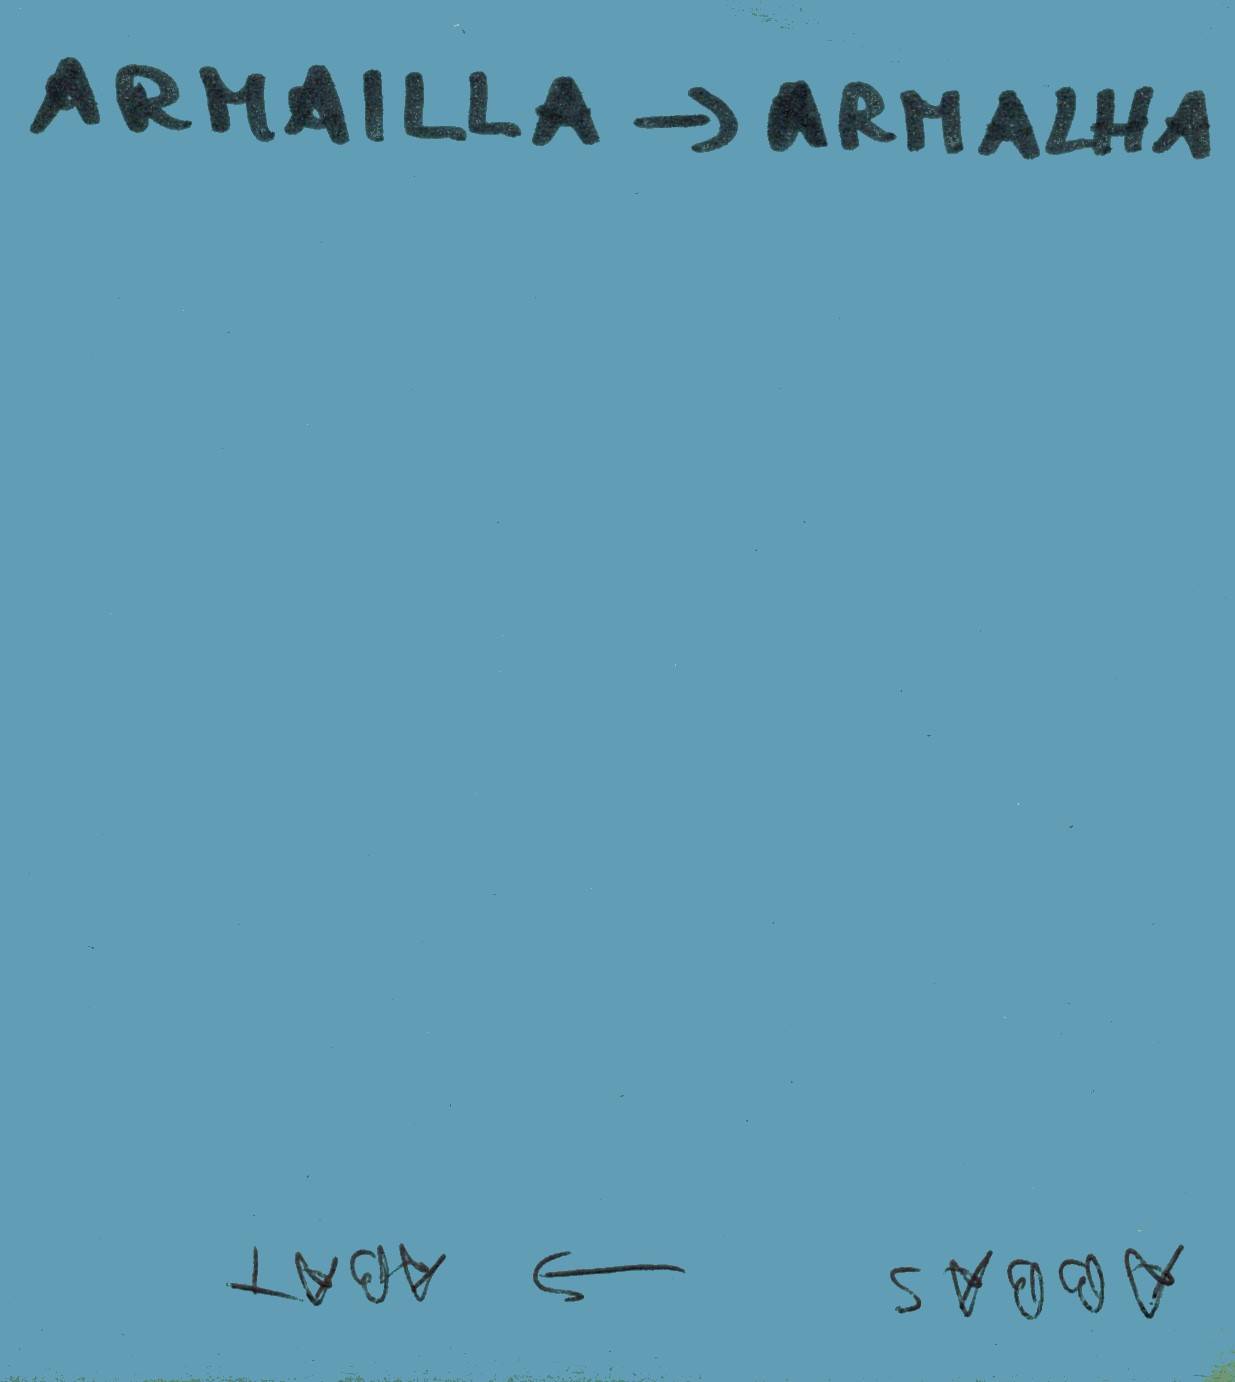 ARMAILLA → ARMALHA
ABBAS → ABAT